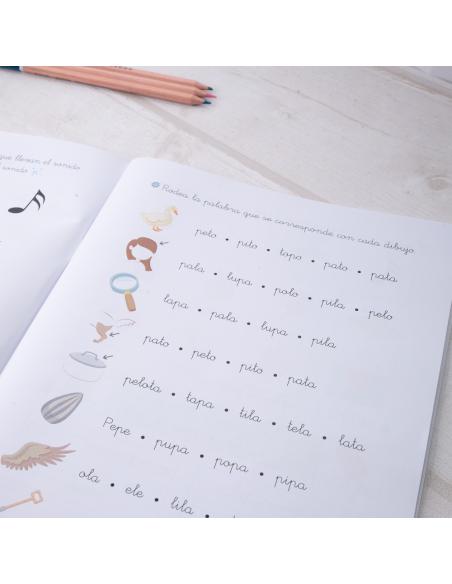 que llevan el sonido
sonido "p".
Rodea la palabra que se corresponde con cada dibujo.
peto • pito • tapo • pato • pata
pala • lupa • polo • pila • pelo
tapa • pala • lupa • pila
pato • peto • pito • pata
pelota • tapa • tila • tela • lata
Pepe • pupa • popa • pipa
ola • ele • lila •